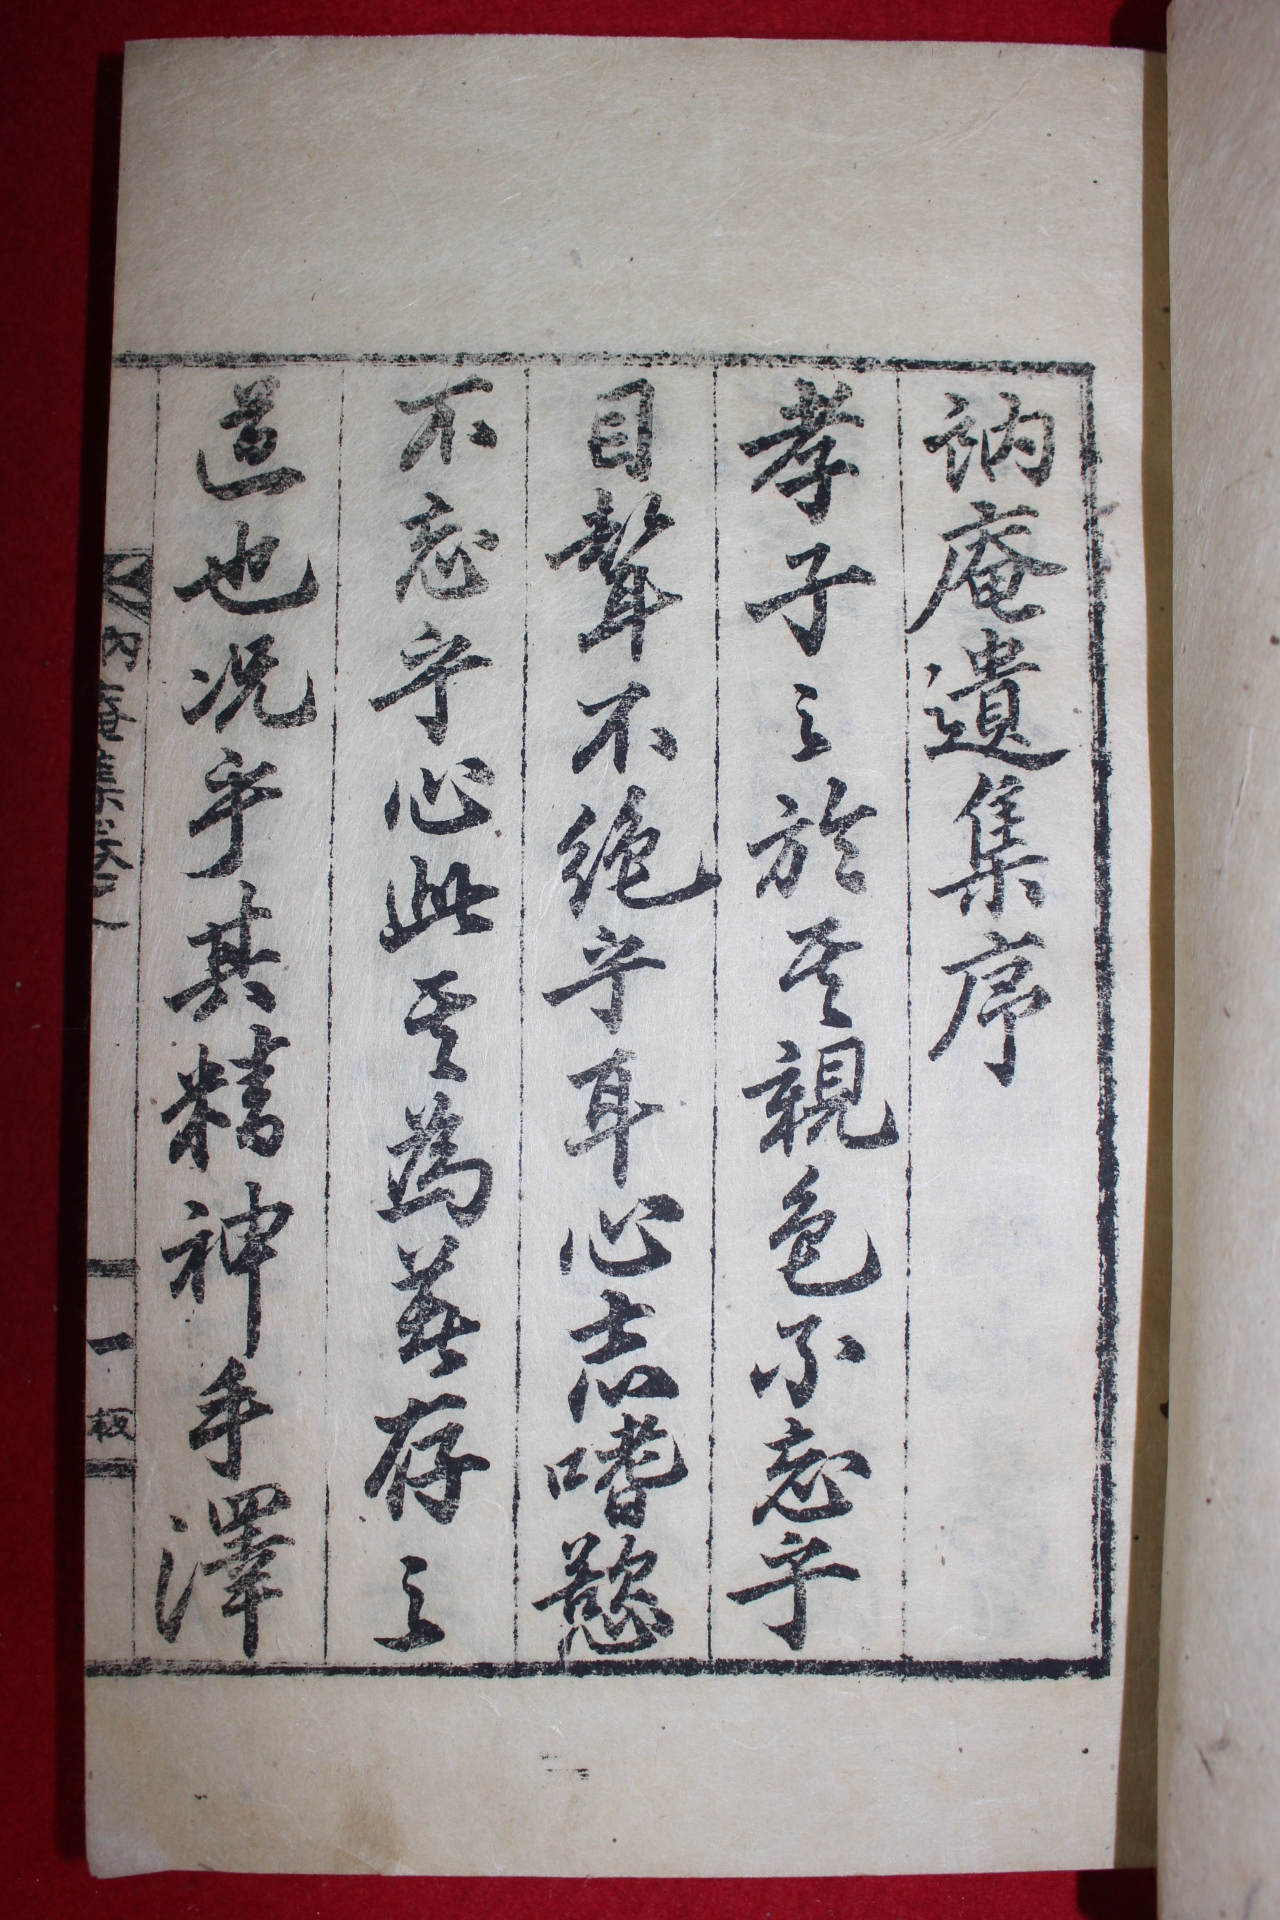 訥庵遺集序
孝子之於其親色不忘乎
目聲不絶乎耳心志嗜慾
不忘乎心此其為著存之
道也况乎其精神手澤
訥庵集卷之
一
板